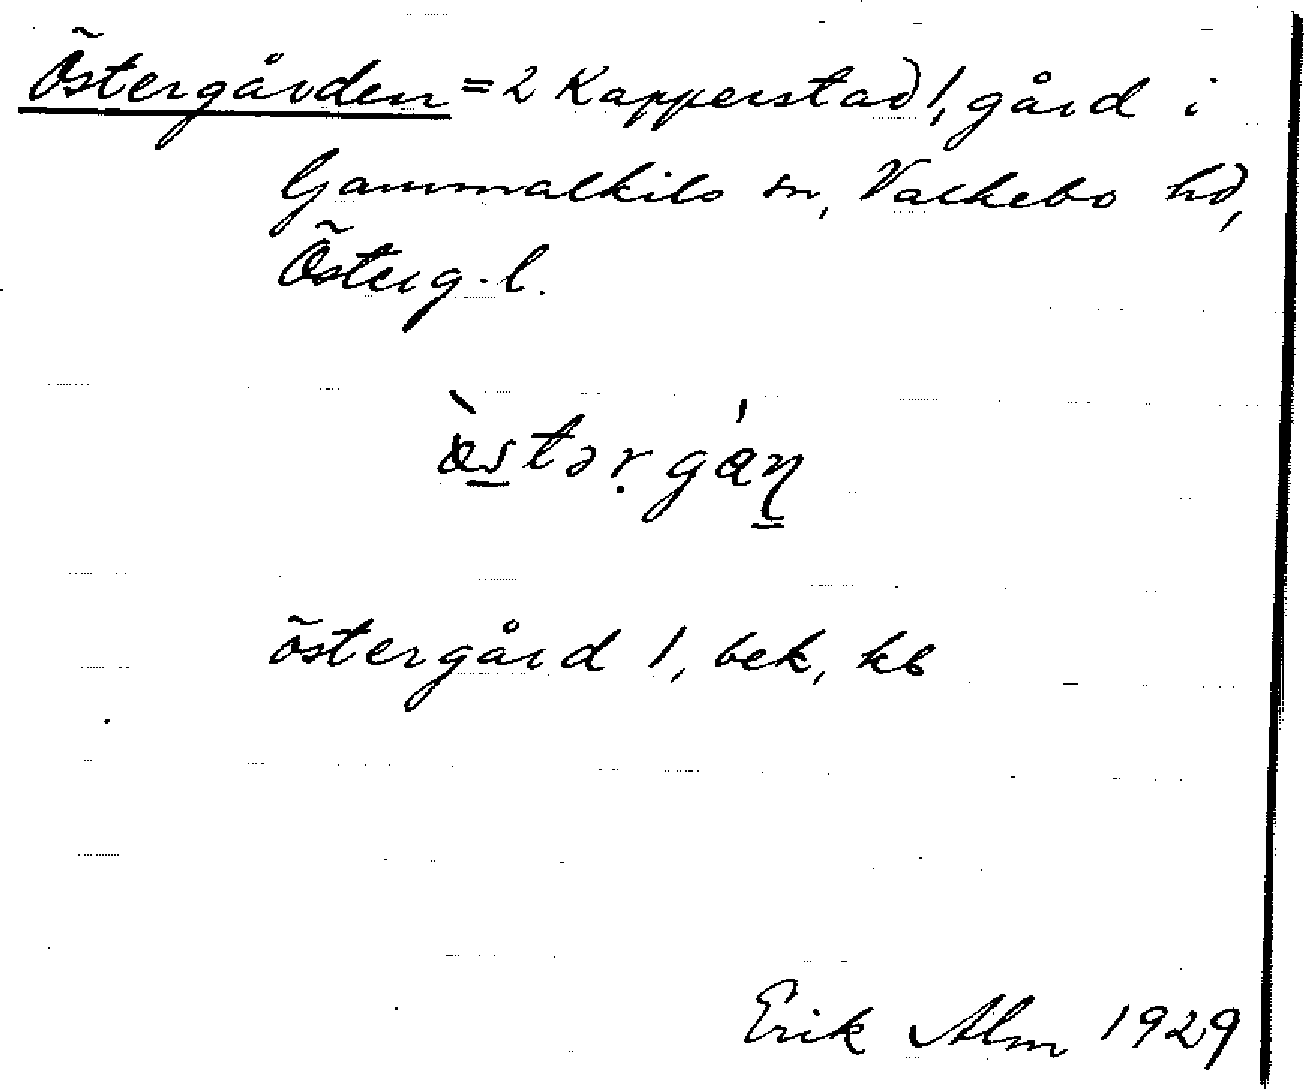 Östergården = 2 Kapperstad 1, gård i
Gammalkils sn, Valkebo hd,
Österg. l.
östergård 1, bek, kb
Erik Alm 1929